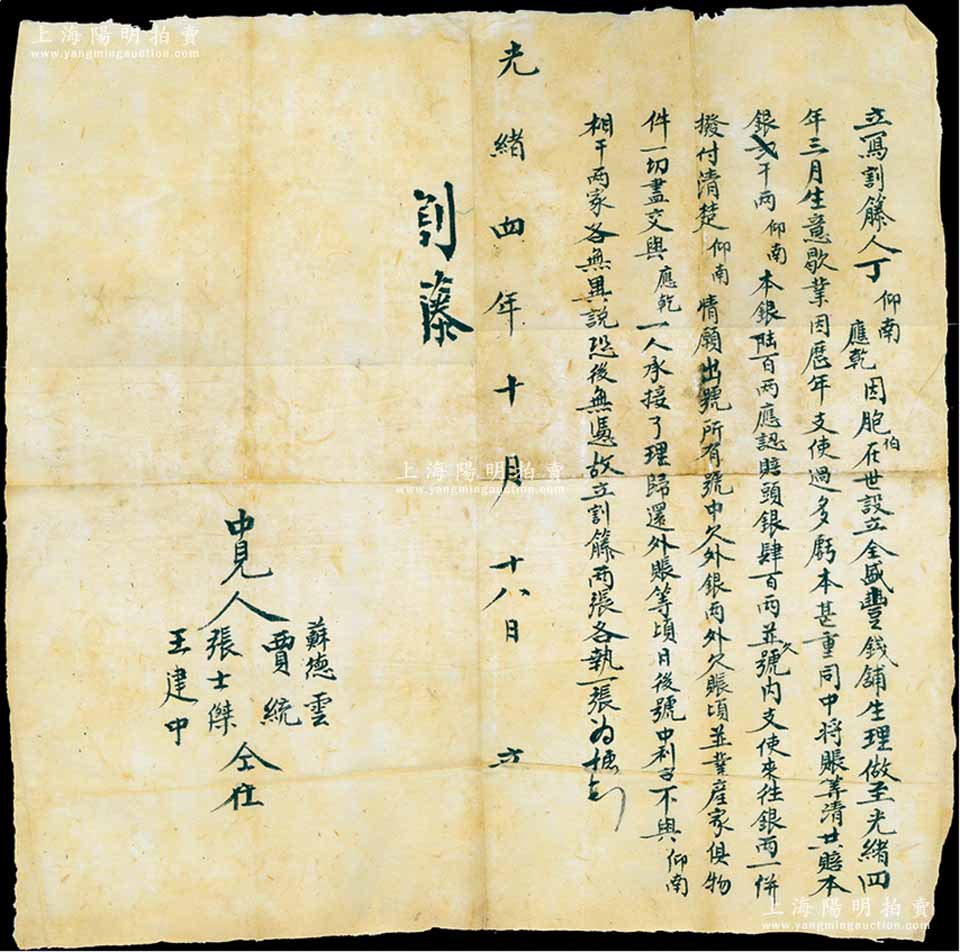 立寫割籐人丁仰南應乾因胞伯在世設立全盛豐錢舖生理做至光緒四
年三月生意歇業因歷年支使過多虧本甚重同中將賬算清共賠本
銀弍千两仰南本銀陸百两應認賠頭銀肆百两並欠號內支使來往銀两一併
撥付清楚仰南情願出號所有號中欠外銀两外欠賬項並業産家俱物
件一切盡交與應乾一人承接了理歸還外賬等項日後號中利不與仰南
相干两家各無異説恐後無憑故立割籐两張各執一張為據
光緒四年十月十八日立
割藤
中見人
蘇德雲
賈統
張士傑
王建中
仝在
上海陽明拍賣
www.yangmingauction.com
上海陽明拍賣
www.yangmingauction.com
上海陽明拍賣
www.yangmingauction.com